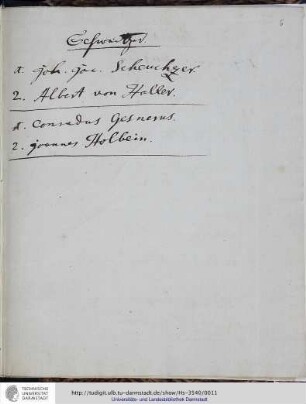 Schweitzer
1. Joh. Jac. Scheuchzer.
2. Albert von Haller.
1. Conradus Gesnerus.
2. Joannes Holbein.
TECHNISCHE
UNIVERSITÄT
DARMSTADT
http://tudigit.ulb.tu-darmstadt.de/show/Hs-3540/0011
Universitäts- und Landesbibliothek Darmstadt